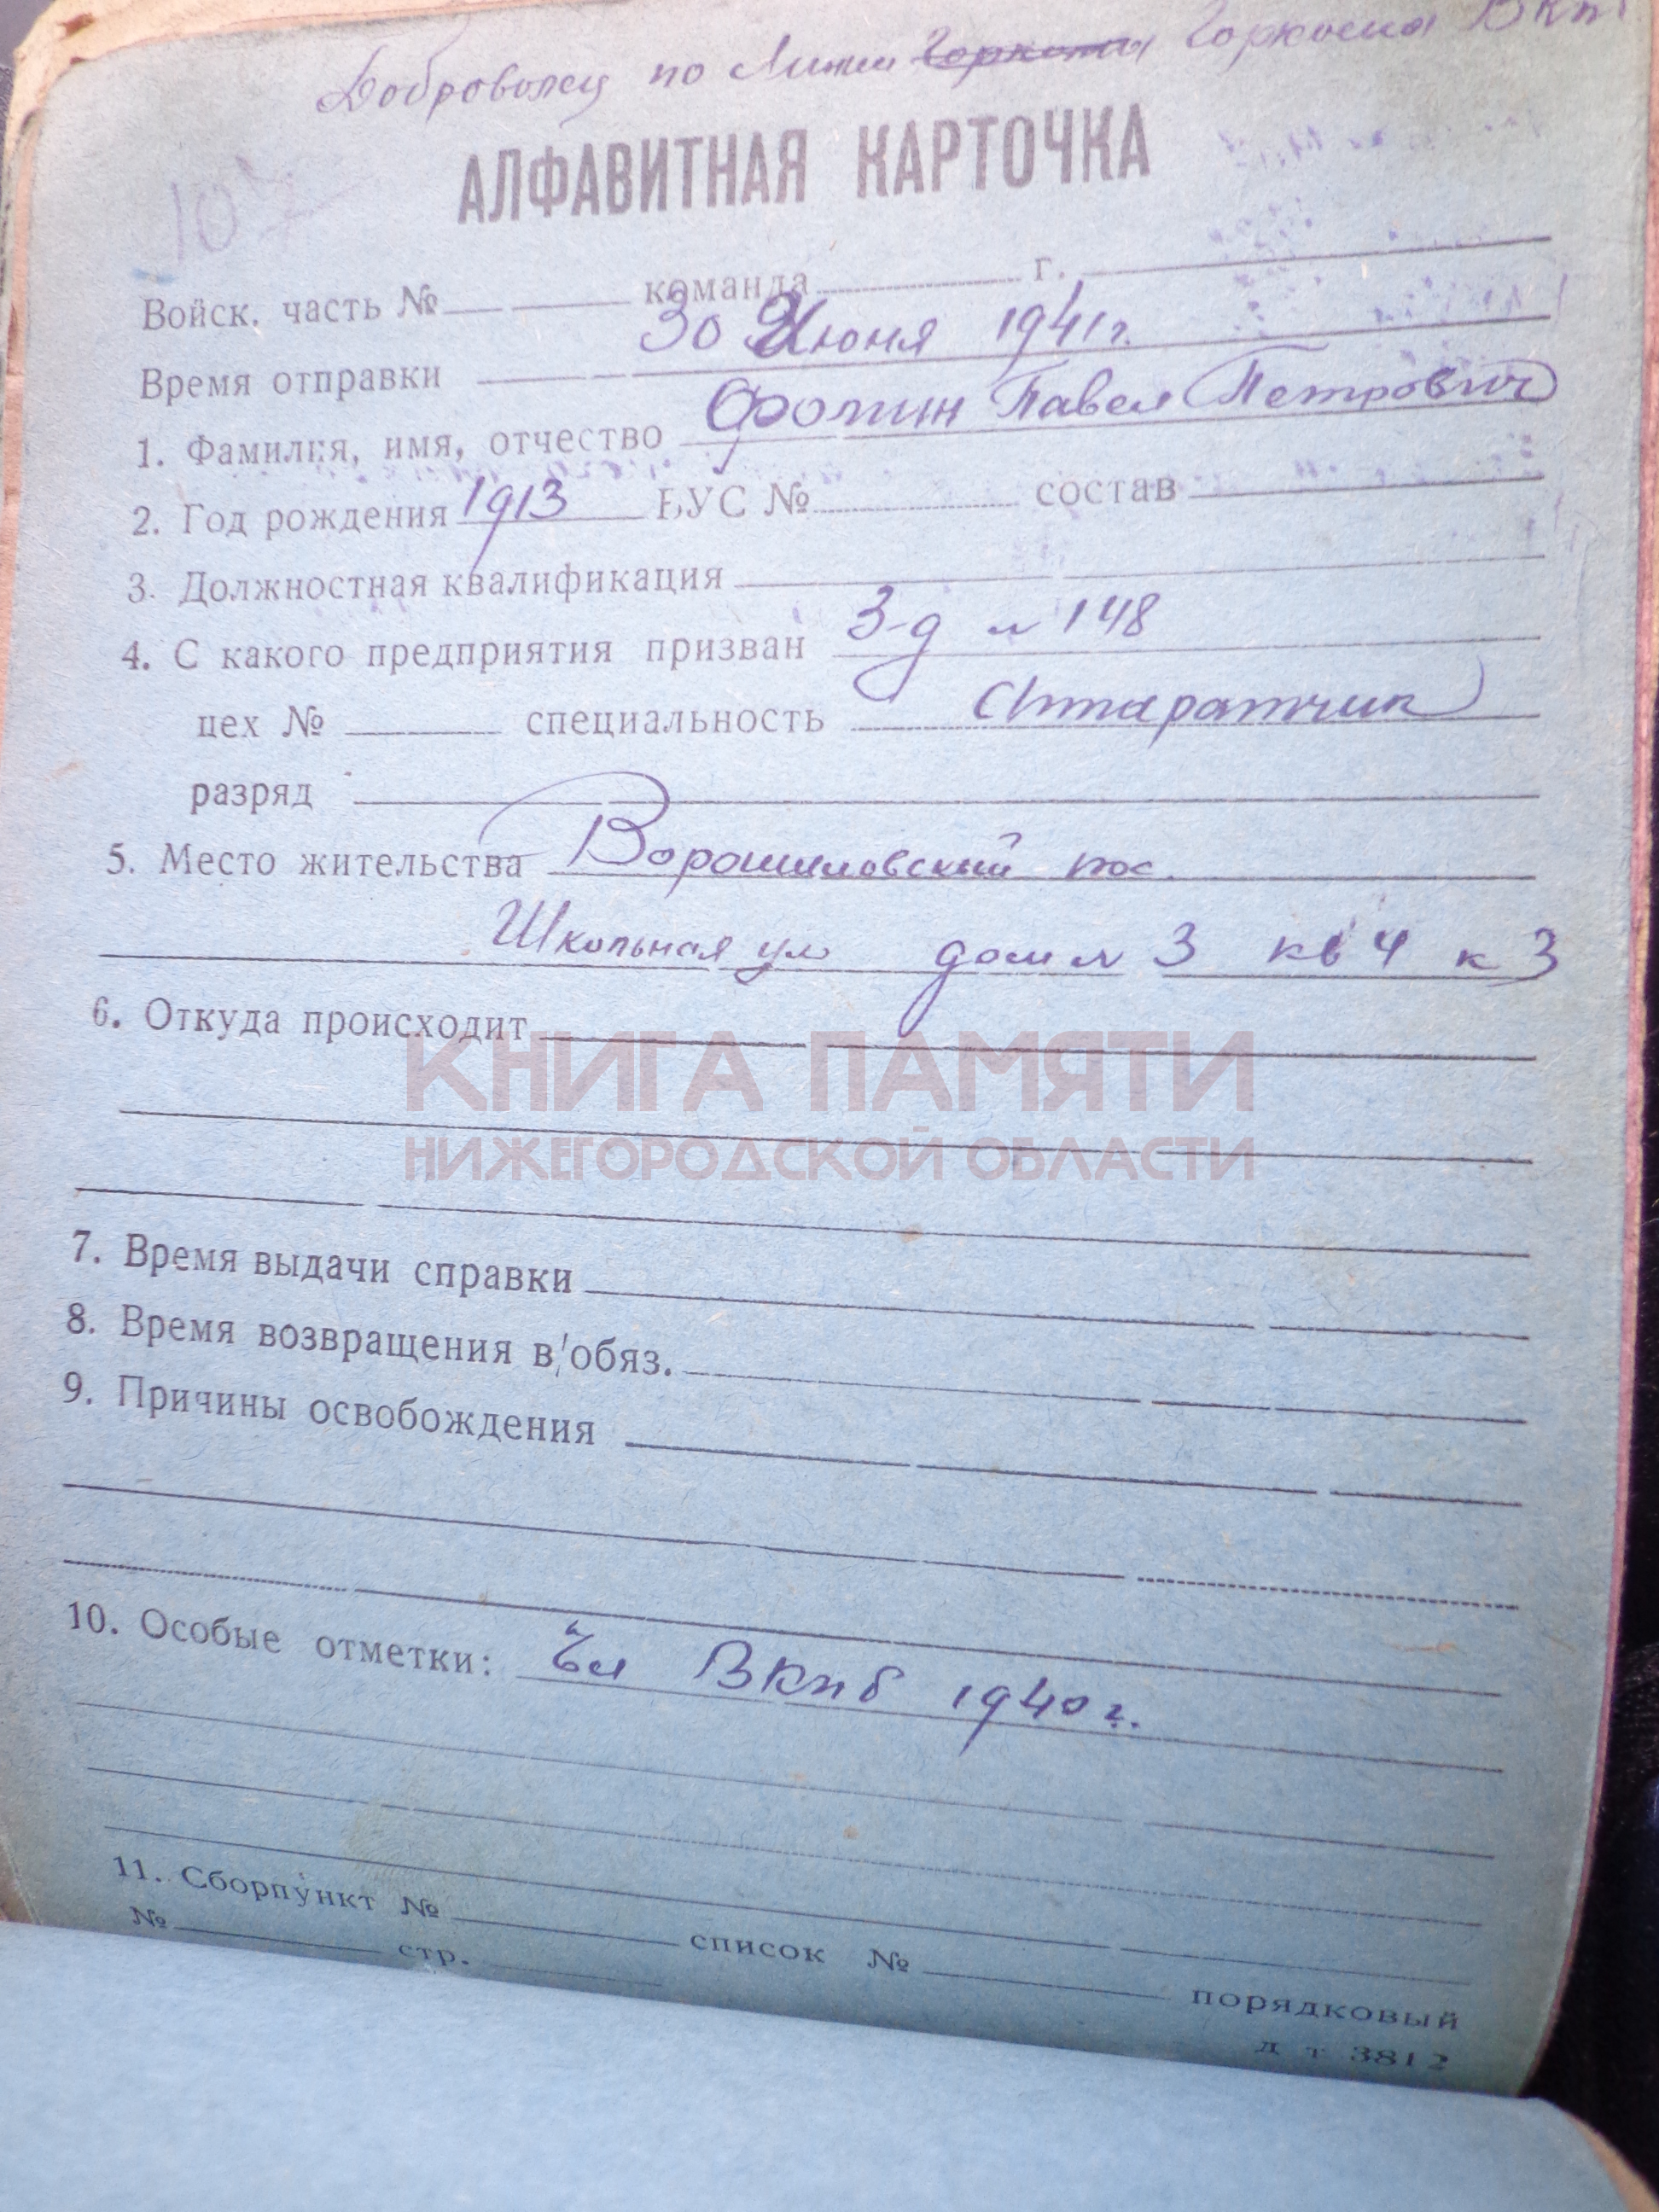 Доброволец по Линии Горкома Горкома ВКП
АЛФАВИТНАЯ КАРТОЧКА
107
Войск. часть № команда г.
Время отправки 30 Июня 1941 г.
1. Фамилия, имя, отчество Фомин Павел Петрович
2. Год рождения 1913 ВУС № состав
3. Должностная квалификация
4. С какого предприятия призван З-д № 148
цех № специальность Аппаратчик
разряд
5. Место жительства Ворошиловский пос.
Школьная ул дом № 3 кв 4 к 3
6. Откуда происходит
КНИГА ПАМЯТИ
НИЖЕГОРОДСКОЙ ОБЛАСТИ
7. Время выдачи справки
8. Время возвращения в обяз.
9. Причины освобождения
10. Особые отметки: Чл ВКПб 1940 г.
11. Сборпункт № список № порядковый
№ стр.
д т 3812